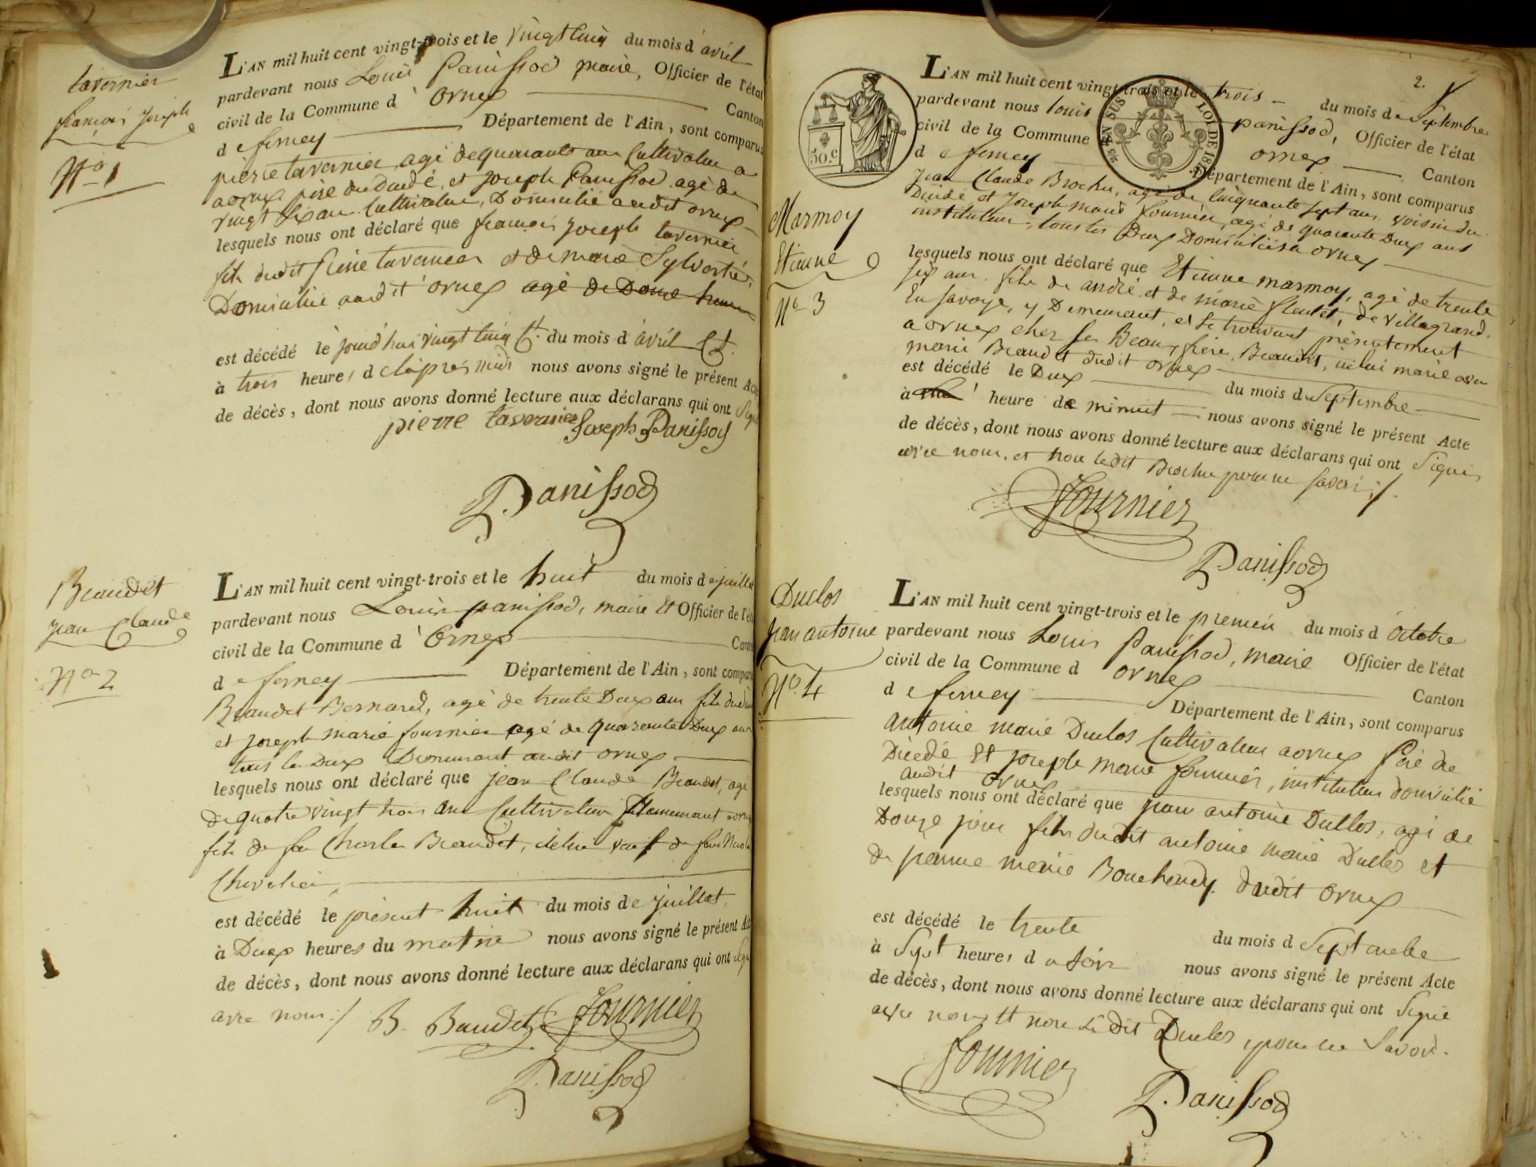 tavernier
françois joseph
No 1
L'AN mil huit cent vingt-trois et le vingt cinq du mois d'avril
pardevant nous Louis Panissod maire, Officier de l'état
civil de la Commune d'Ornex Canton
de ferney Département de l'Ain, sont comparus
pierre tavernier agé de quarante ans Cultivateur a
aornex père du Dcédé, et joseph Panissod agé de
vingt six ans Cultivateur, Domicilié audit ornex
lesquels nous ont déclaré que françois joseph tavernier
fils dudit Pierre tavernier et de marie Sylvestre,
Domicilié audit ornex agé de Douze heures
est décédé le jourd'hui vingt cinq du mois d'avril
à trois heures de l'après midi nous avons signé le présent Acte
de décès, dont nous avons donné lecture aux déclarans qui ont
pierre tavernier Joseph Panissod
Panissod
Beaudet
jean Claude
No 2
L'AN mil huit cent vingt-trois et le huit du mois de juillet
pardevant nous Louis panissod, maire Et Officier de l'état
civil de la Commune d'Ornex
de ferney Département de l'Ain, sont comparus
Beaudet Bernard, agé de trente Deux ans fils du
et joseph marie fournier agé de quarante Deux ans
tous les Deux Demeurant audit ornex
lesquels nous ont déclaré que jean Claude Beaudet, agé
de quatre vingt trois ans Cultivateur Demeurant
fils de feu Charles Beaudet, veuf de feue
Chevalier
est décédé le présent huit du mois de juillet
à Deux heures du matin nous avons signé le présent
de décès, dont nous avons donné lecture aux déclarans qui ont
avec nous ./
B. Baudet Fournier
Panissod
2.
50.c
EN SUS LOI DE
Marmoy
Etienne
No 3
L'AN mil huit cent vingt-trois et le trois du mois de Septembre
pardevant nous louis panissod, Officier de l'état
civil de la Commune ornex Canton
de ferney Département de l'Ain, sont comparus
jean Claude Brochu, agé de cinquante sept ans voisin du
Décédé et Joseph marie fournier, agé de quarante Deux ans
instituteur, tous les Deux Domiciliés a ornex
lesquels nous ont déclaré que Etienne marmoy, agé de trente
six ans fils de andré et de marie de Villagrand
En Savoye, y Demeurant, et Se trouvant présentement
a ornex chez son Beau frère, Beaudet, marié avec
marie Beaudet dudit ornex
est décédé le Deux du mois de Septembre
à heure de minuit nous avons signé le présent Acte
de décès, dont nous avons donné lecture aux déclarans qui ont Signé
avec nous, et non ledit Brochu pour ne savoir ./.
Fournier
Panissod
Duclos
jean antoine
No 4
L'AN mil huit cent vingt-trois et le premier du mois d'octobre
pardevant nous Louis Panissod, maire Officier de l'état
civil de la Commune d ornex Canton
de ferney Département de l'Ain, sont comparus
antoine marie Duclos Cultivateur aornex Père du
Décédé Et joseph marie fournier, instituteur domicilié
audit ornex
lesquels nous ont déclaré que jean antoine Duclos, agé de
Douze jours fils dudit antoine marie Duclos et
de jeanne marie Bouchardy dudit ornex
est décédé le trente du mois d Septembre
à Sept heures du soir nous avons signé le présent Acte
de décès, dont nous avons donné lecture aux déclarans qui ont Signé
avec nous Et non Le dit Duclos, pour ne Savoir.
Fournier
Panissod